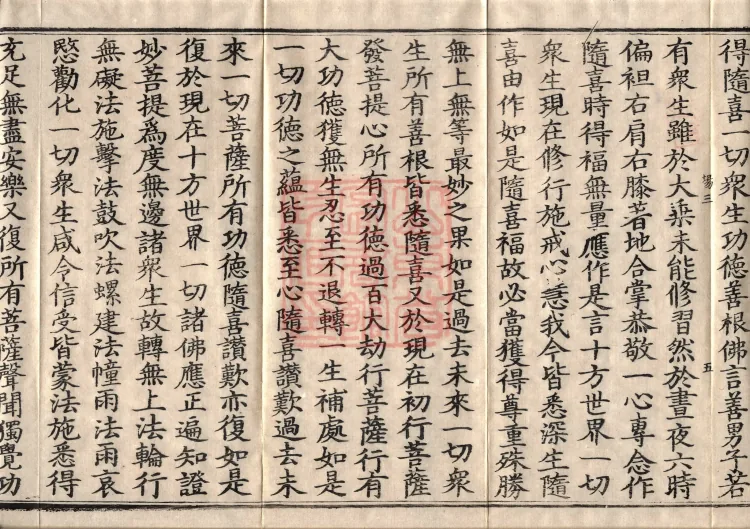 得隨喜一切衆生功德善根佛言善男子若
三 五
有衆生雖於大乘未能修習然於晝夜六時
偏袒右肩右膝著地合掌恭敬一心專念作
隨喜時得福無量應作是言十方世界一切
衆生現在修行施戒心慧我今皆悉深生隨
喜由作如是隨喜福故必當獲得尊重殊勝
無上無等最妙之果如是過去未來一切衆
生所有善根皆悉隨喜又於現在初行菩薩
發菩提心所有功德過百大劫行菩薩行有
大功德獲無生忍至不退轉一生補處如是
一切功德之蘊皆悉至心隨喜讚歎過去未
來一切菩薩所有功德隨喜讚歎亦復如是
復於現在十方世界一切諸佛應正遍知證
妙菩提爲度無邊諸衆生故轉無上法輪行
無礙法施擊法鼓吹法螺建法幢雨法雨哀
愍勸化一切衆生咸令信受皆蒙法施悉得
充足無盡安樂又復所有菩薩聲聞獨覺功